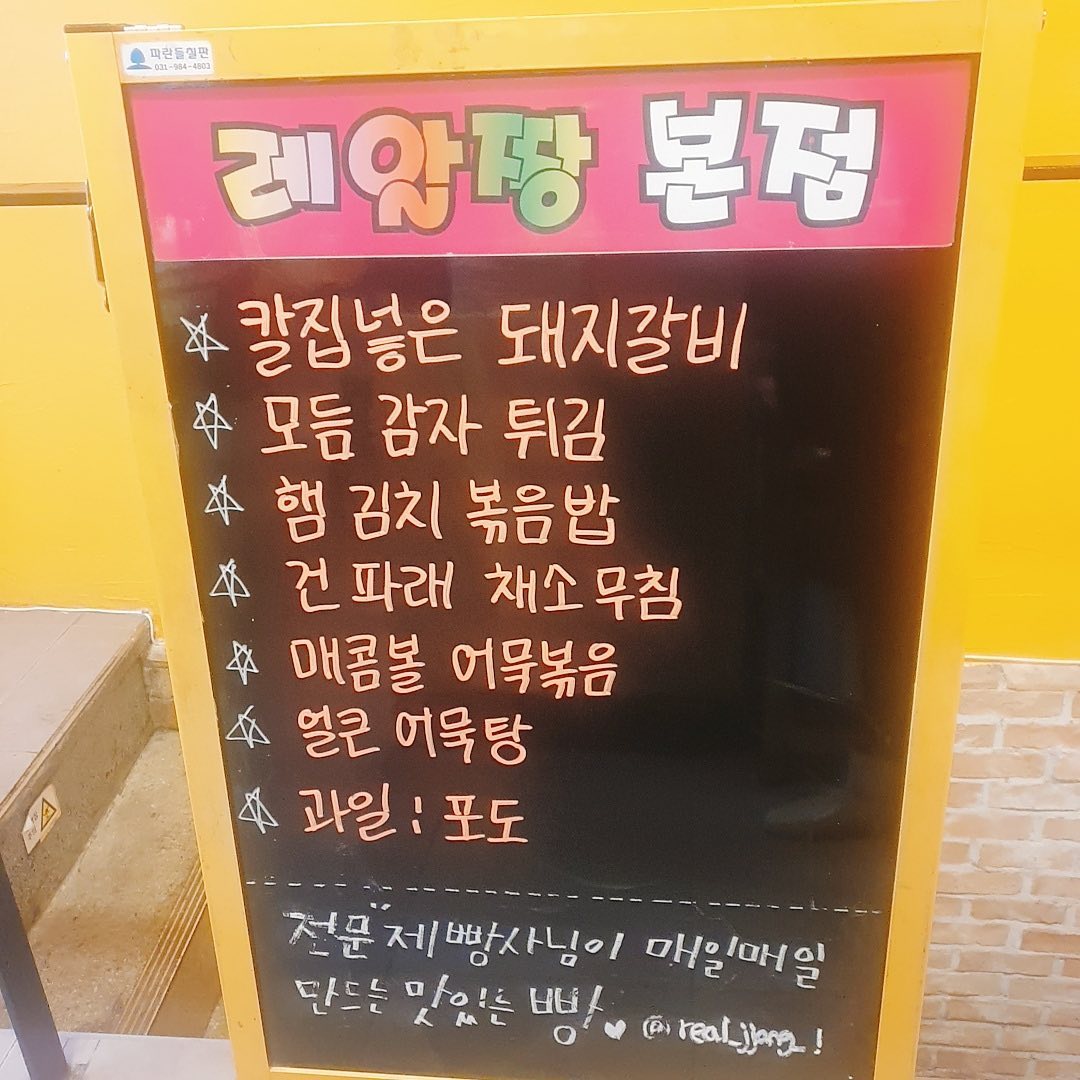 파란들칠판
031-984-4803
레알짱 본점
칼집넣은 돼지갈비
모듬 감자 튀김
햄 김치 볶음밥
건 파래 채소무침
매콤볼 어묵볶음
얼큰 어묵탕
과일 : 포도
전문 제빵사님이 매일매일
만드는 맛있는 빵♥ @real_jjang_!